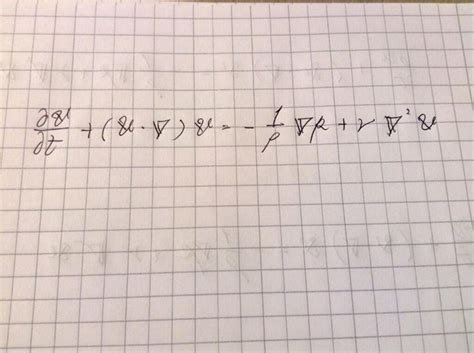 ∂𝐮/∂t + (𝐮 · ∇) 𝐮 = - 1/ρ ∇p + ν ∇² 𝐮